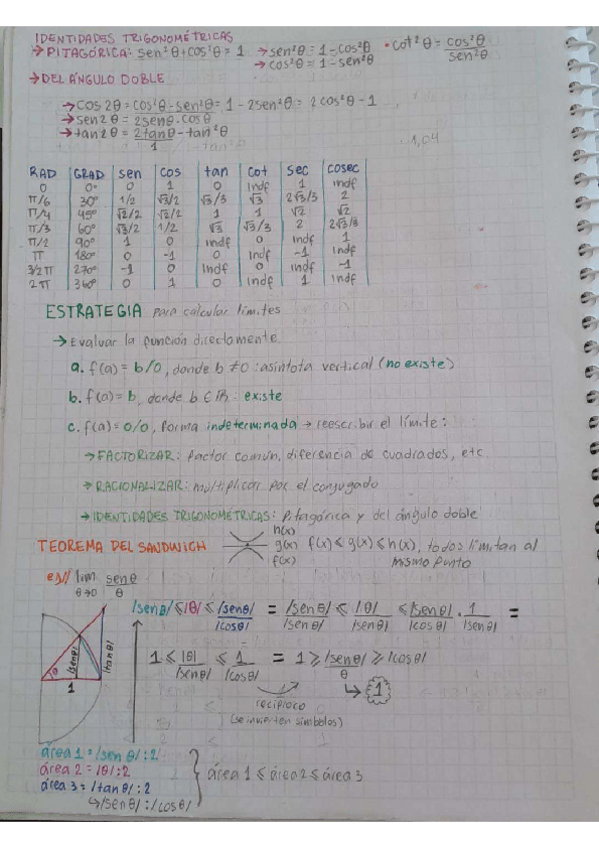 IDENTIDADES TRIGONOMÉTRICAS
→ PITAGÓRICA: sen²θ + cos²θ = 1 → sen²θ = 1 - cos²θ • cot²θ = cos²θ / sen²θ
→ cos²θ = 1 - sen²θ
→ DEL ÁNGULO DOBLE
→ cos 2θ = cos²θ - sen²θ = 1 - 2sen²θ = 2cos²θ - 1
→ sen 2θ = 2senθ.cosθ
→ tan 2θ = 2tanθ - tan²θ / 1
RAD GRAD sen cos tan cot sec cosec
0 0° 0 1 0 indf 1 indf
π/6 30° 1/2 √3/2 √3/3 √3 2√3/3 2
π/4 45° √2/2 √2/2 1 1 √2 √2
π/3 60° √3/2 1/2 √3 √3/3 2 2√3/3
π/2 90° 1 0 indf 0 indf 1
π 180° 0 -1 0 indf -1 indf
3/2 π 270° -1 0 indf 0 indf -1
2π 360° 0 1 0 indf 1 indf
ESTRATEGIA para calcular límites
→ Evaluar la función directamente
a. f(a) = b/0, donde b ≠ 0 : asíntota vertical (no existe)
b. f(a) = b, donde b ∈ ℝ : existe
c. f(a) = 0/0, forma indeterminada → reescribir el límite:
→ FACTORIZAR: factor común, diferencia de cuadrados, etc.
→ RACIONALIZAR: multiplicar por el conjugado
→ IDENTIDADES TRIGONOMÉTRICAS: Pitagórica y del ángulo doble
TEOREMA DEL SANDWICH h(x) g(x) f(x) f(x) ≤ g(x) ≤ h(x), todos limitan al
mismo punto
ej// lim θ→0 senθ / θ
/senθ/ ≤ /θ/ ≤ /senθ/ / /cosθ/ = /senθ/ / /senθ/ ≤ /θ/ / /senθ/ ≤ /senθ/ / /cosθ/ . 1 / /senθ/ =
1 ≤ /θ/ / /senθ/ ≤ 1 / /cosθ/ = 1 ≥ /senθ/ / θ ≥ /cosθ/
↳ 1
recíproco
(se invierten símbolos)
θ /senθ/ /tanθ/
1
área 1 = /sen θ/ : 2
área 2 = /θ/ : 2
área 3 = /tan θ/ : 2
↳ /sen θ/ : /cos θ/
área 1 ≤ área 2 ≤ área 3